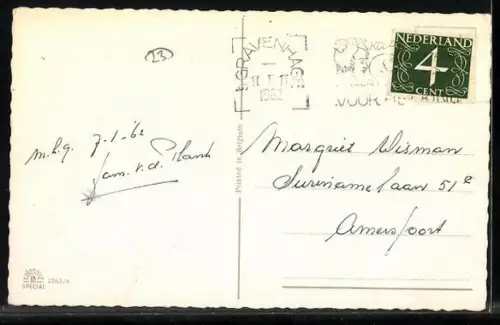 23
'S GRAVENHAGE
1962
VOOR
NEDERLAND
4
CENT
m.h.g. 7-1-'62
fam. v.d. Plank
Printed in Belgium
Margriet Wisman
Surinamelaan 51
Amersfoort
B
SPECIAL